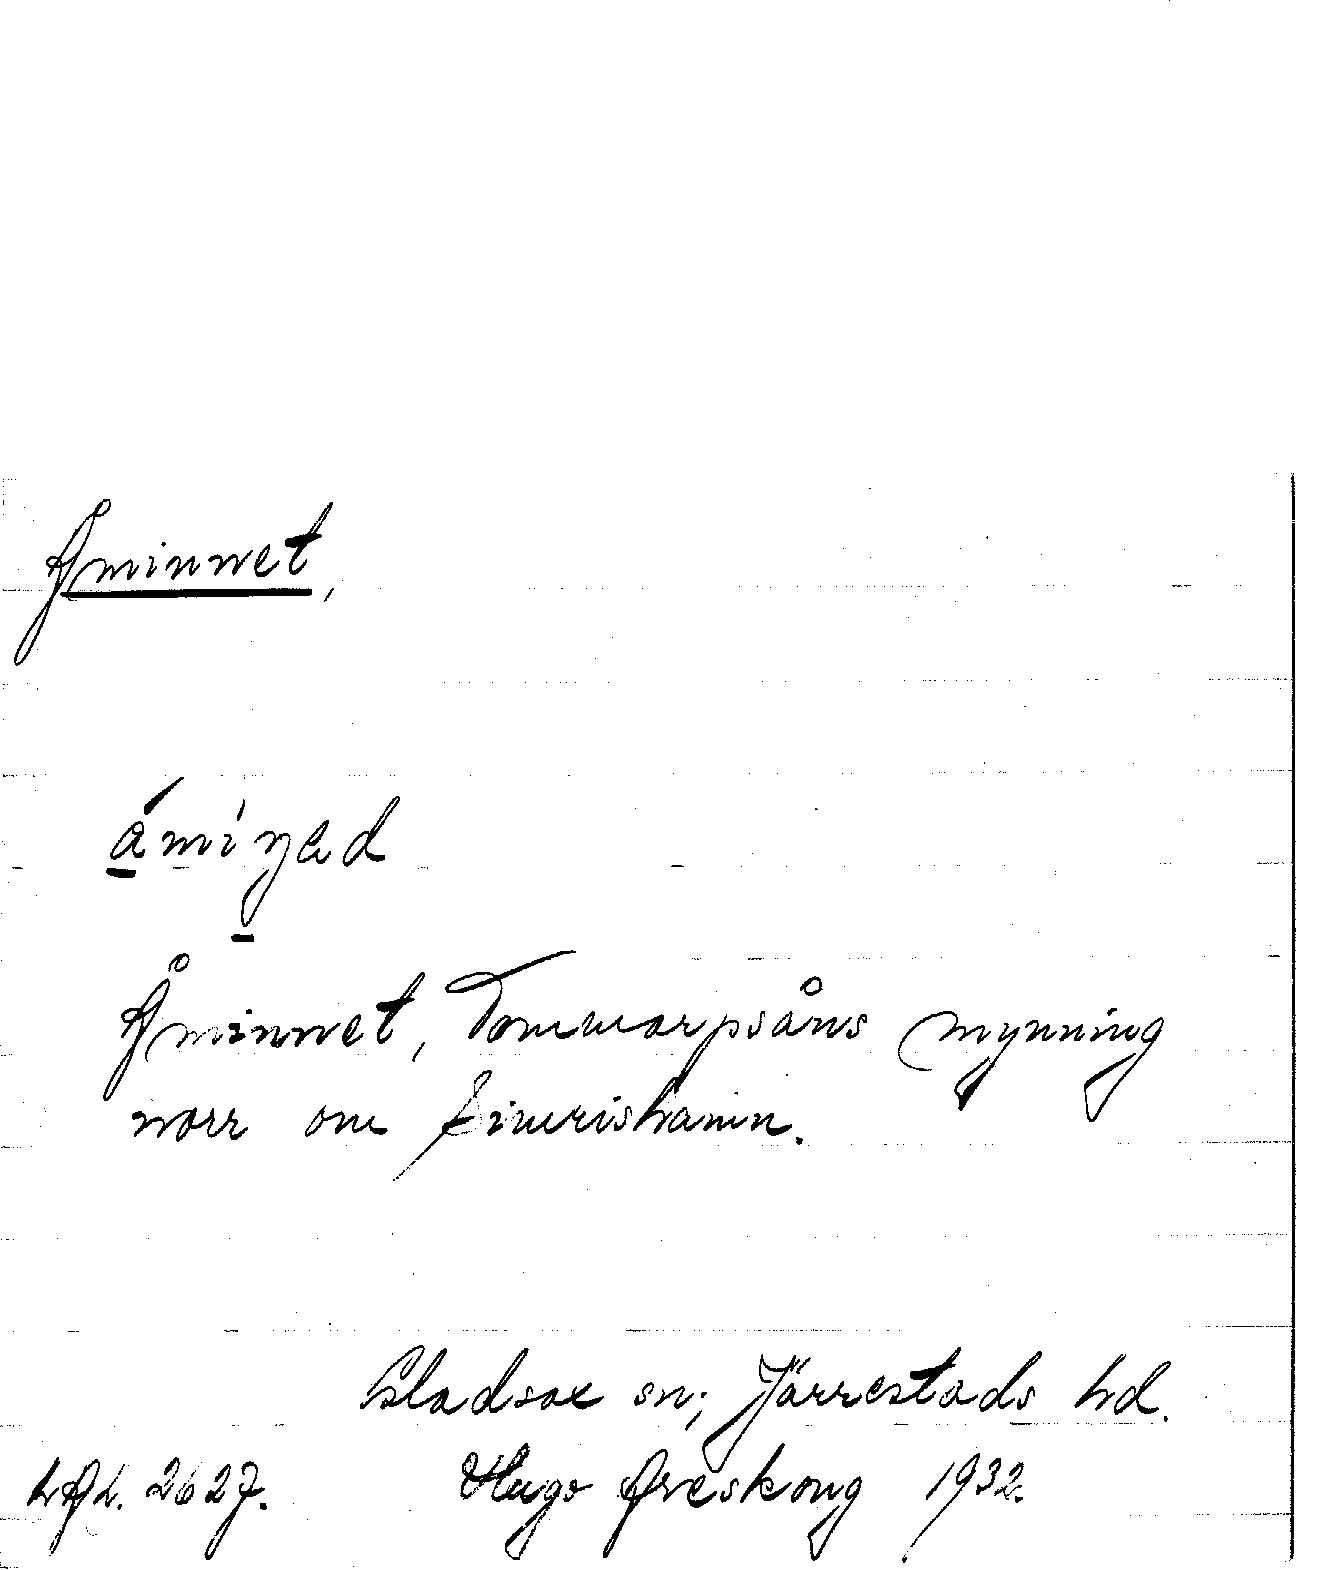 Åminnet,
åmiŋad
Åminnet, Tommarpsåns mynning
norr om Simrishamn.
Gladsax sn; Järrestads hd.
LAL. 2627. Hugo Areskoug 1932.